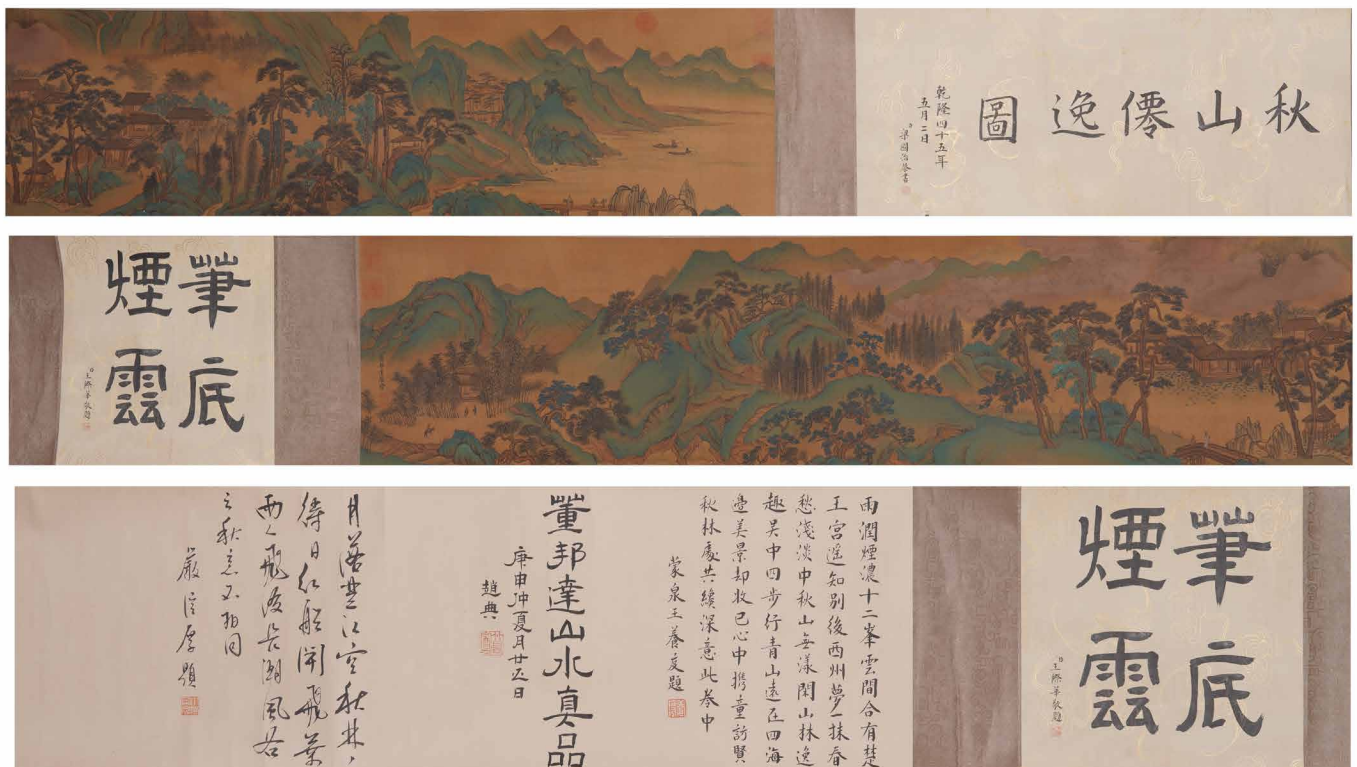 秋山僊逸圖
乾隆四十五年
五月二日
梁國治恭書
筆底
煙雲
王際華敬題
筆底
煙雲
王際華敬題
雨潤煙濃十二峯雲間合有楚
王宮遙知別後西州夢一抹春
愁淺淡中秋山無漾閑山林逸
趣吳中四步行青山遠在四海
邊美景却收已心中携童訪賢
秋林處共續深意此卷中
蒙泉王養度題
董邦達山水真品
庚申仲夏月廿五日
趙典
月落楚江空秋林
待日紅船開飛葉
兩人飛渡長湖風
之秋意不相同
嚴信厚題